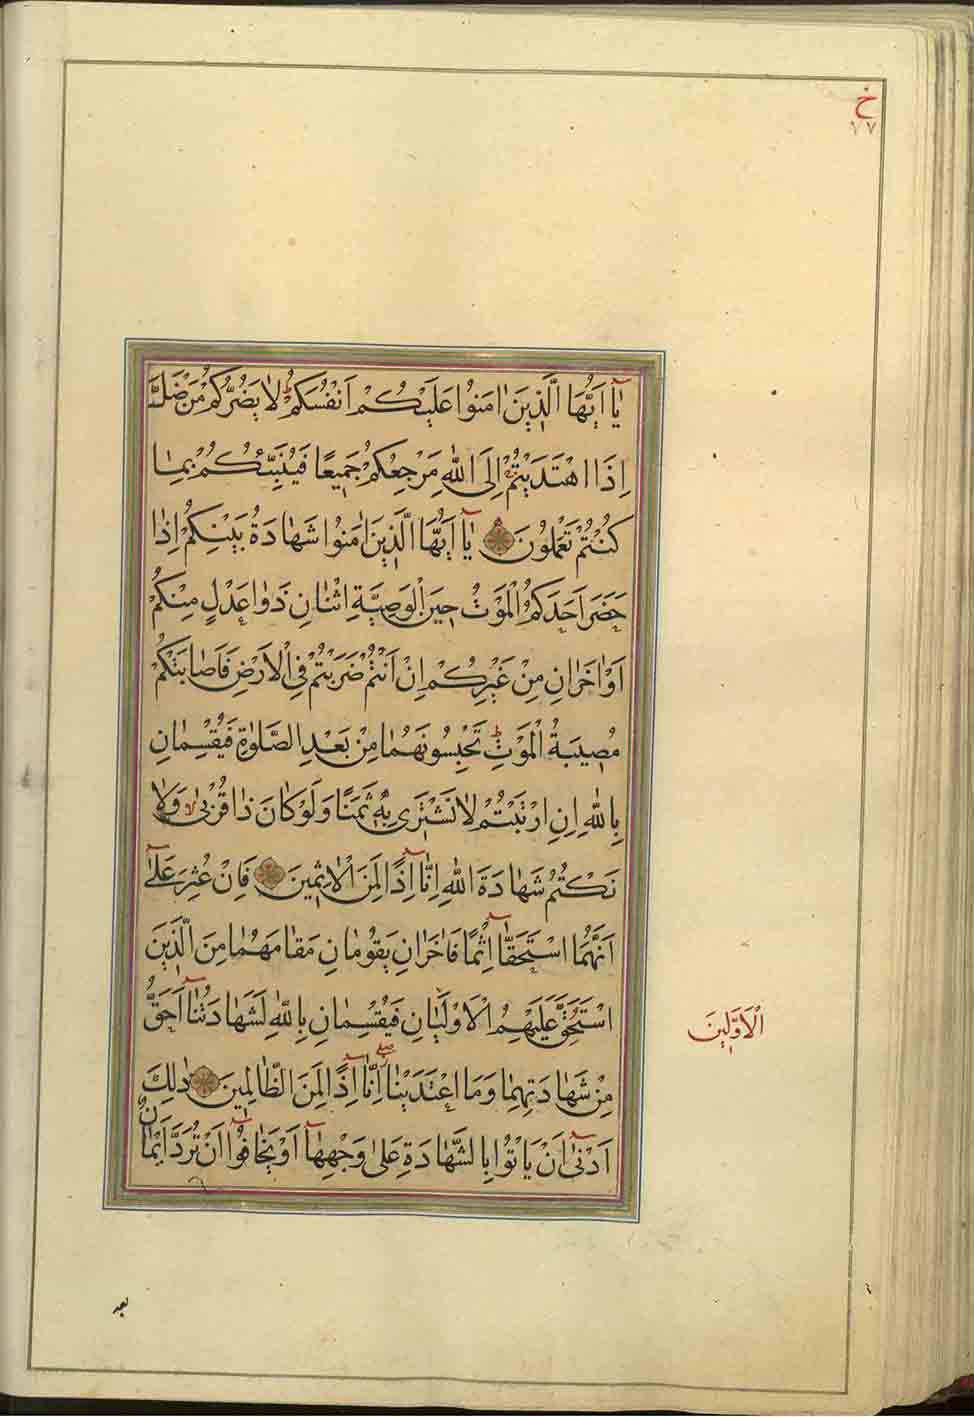 خ
٧٧
يَآ اَيُّهَا الَّذِينَ اٰمَنُوا عَلَيْكُمْ اَنْفُسَكُمْ لَا يَضُرُّكُمْ مَنْ ضَلَّ
اِذَا اهْتَدَيْتُمْ اِلَى اللّٰهِ مَرْجِعُكُمْ جَمِيعًا فَيُنَبِّئُكُمْ بِمَا
كُنْتُمْ تَعْمَلُونَ يَآ اَيُّهَا الَّذِينَ اٰمَنُوا شَهَادَةُ بَيْنِكُمْ اِذَا
حَضَرَ اَحَدَكُمُ الْمَوْتُ حِينَ الْوَصِيَّةِ اثْنَانِ ذَوَا عَدْلٍ مِنْكُمْ
اَوْ اٰخَرَانِ مِنْ غَيْرِكُمْ اِنْ اَنْتُمْ ضَرَبْتُمْ فِي الْاَرْضِ فَاَصَابَتْكُمْ
مُصِيبَةُ الْمَوْتِ تَحْبِسُونَهُمَا مِنْ بَعْدِ الصَّلٰوةِ فَيُقْسِمَانِ
بِاللّٰهِ اِنِ ارْتَبْتُمْ لَا نَشْتَرِى بِهِ ثَمَنًا وَلَوْ كَانَ ذَا قُرْبٰى وَلَا
نَكْتُمُ شَهَادَةَ اللّٰهِ اِنَّآ اِذًا لَمِنَ الْاٰثِمِينَ فَاِنْ عُثِرَ عَلٰٓى
اَنَّهُمَا اسْتَحَقَّآ اِثْمًا فَاٰخَرَانِ يَقُومَانِ مَقَامَهُمَا مِنَ الَّذِينَ
اسْتَحَقَّ عَلَيْهِمُ الْاَوْلَيَانِ فَيُقْسِمَانِ بِاللّٰهِ لَشَهَادَتُنَآ اَحَقُّ
مِنْ شَهَادَتِهِمَا وَمَا اعْتَدَيْنَا اِنَّآ اِذًا لَمِنَ الظَّالِمِينَ ذٰلِكَ
اَدْنٰٓى اَنْ يَاْتُوا بِالشَّهَادَةِ عَلٰى وَجْهِهَآ اَوْ يَخَافُوٓا اَنْ تُرَدَّ اَيْمَانٌ
الْاَوَّلِينَ
بعد